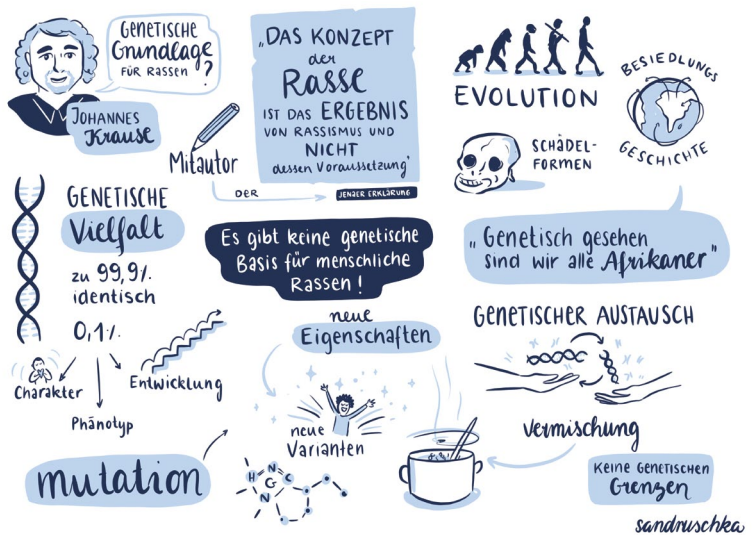 GENETISCHE
Grundlage
FÜR RASSEN ?
JOHANNES
Krause
Mitautor
DER
„DAS KONZEPT
der
Rasse
IST DAS ERGEBNIS
VON RASSISMUS UND
NICHT
dessen Voraussetzung‘
JENAER ERKLÄRUNG
EVOLUTION
BESIEDLUNGS
GESCHICHTE
SCHÄDEL-
FORMEN
GENETISCHE
Vielfalt
zu 99,9%
identisch
0,1%
Charakter
Phänotyp
Entwicklung
Es gibt keine genetische
Basis für menschliche
Rassen !
„Genetisch gesehen
sind wir alle Afrikaner”
neue
Eigenschaften
neue
Varianten
mutation
H N C
G
N
GENETISCHER AUSTAUSCH
Vermischung
KEINE GENETISCHEN
Grenzen
sandruschka